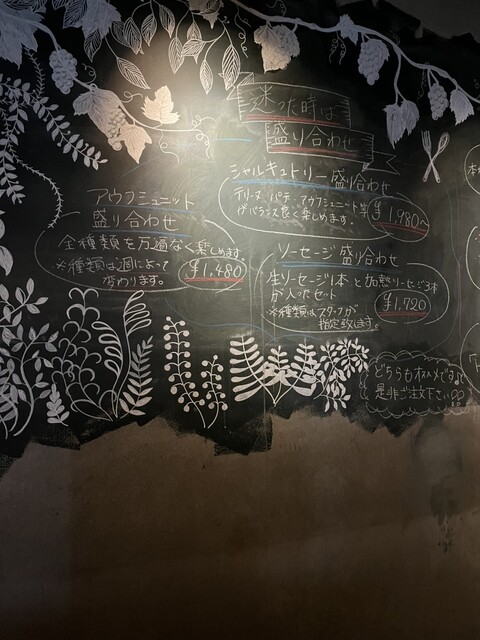 迷った時は
盛り合わせ
シャルキュトリー盛り合わせ
テリーヌ、パテ、アウフシュニット等
がバランス良く楽しめます。
¥1,980〜
アウフシュニット
盛り合わせ
全種類を万遍なく楽しめます。
※種類は週によって
変わります。
¥1,480
ソーセージ盛り合わせ
生ソーセージ1本と加熱ソーセージ3本
が入ったセット
※種類はスタッフが
指定致します。
¥1,720
どちらもオススメです♪
是非ご注文下さい♡♡